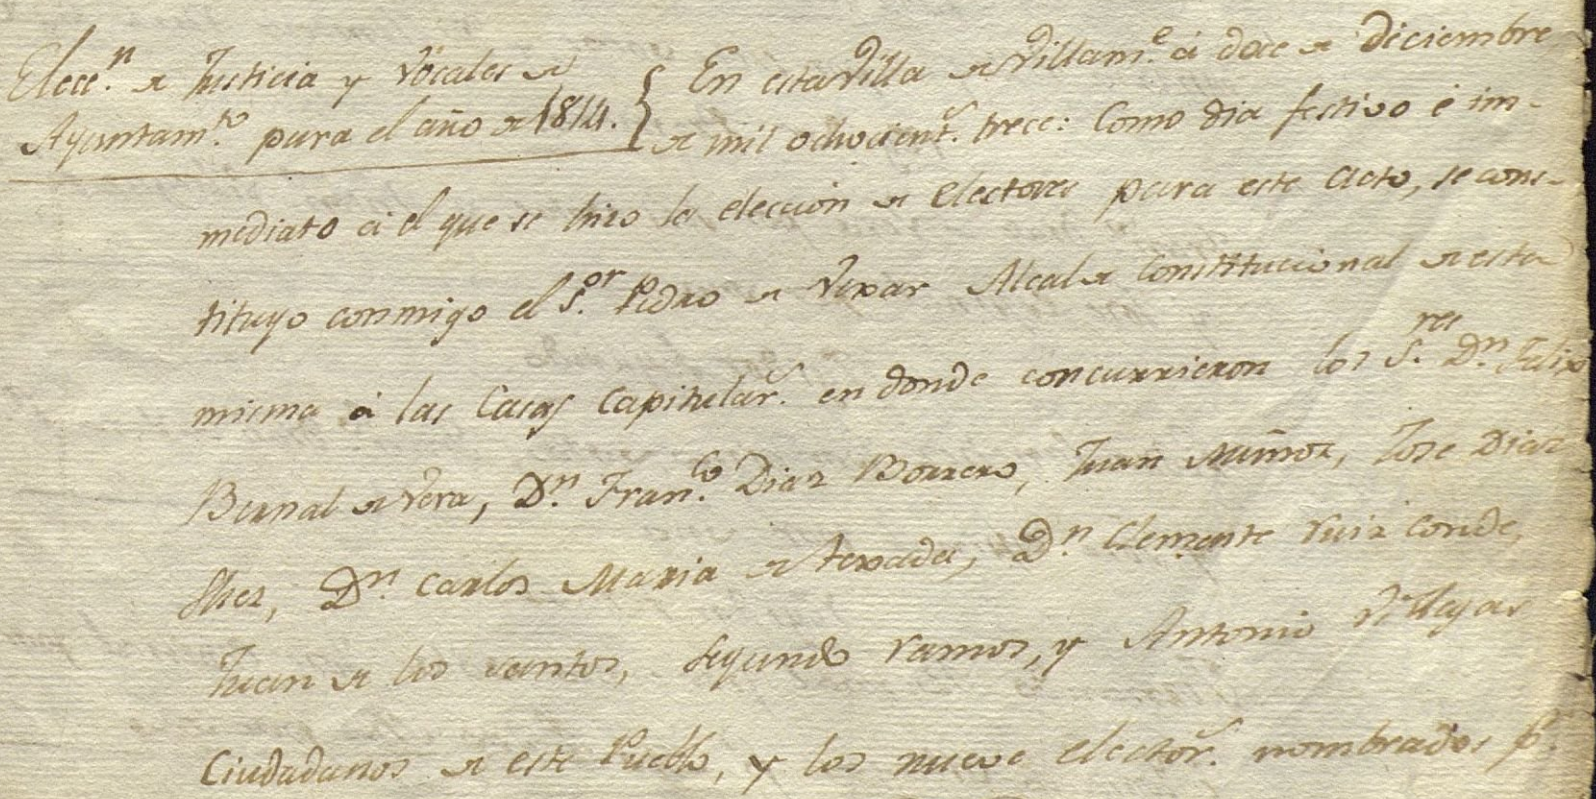 Elecc.n de Justicia y Vocales de
Ayuntam.to para el año de 1814.
En esta Villa de Villam.e á doce de diciembre
de mil ochocient.s trece: Como dia festivo é im-
mediato á el que se hizo la eleccion de electores para este acto, se cons-
tituyo conmigo el S.or Pedro de Vexar Alcalde Constitucional de esta
misma á las Casas Capitular.s en donde concurrieron los S.res D.n Felix
Bernal de Vera, D.n Fran.co Diaz Borrero, Juan Muñoz, Jose Diaz
D.n Carlos Maria de Texada, D.n Clemente Ruiz Conde,
Juan de los santos, Segundo Ramos, y Antonio Villegas
Ciudadanos de este Pueblo, y los nueve elector.s nombrados p.r